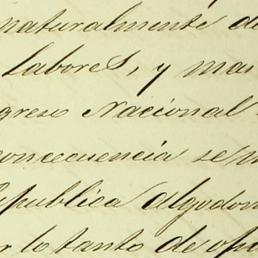 naturalmente de
labores, y mas
greso Nacional
concecuencia se
epublica algodon
r lo tanto de